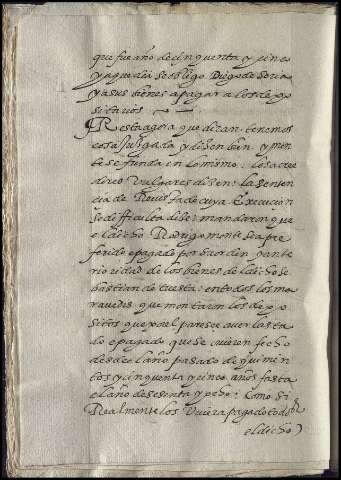 que fue año de cinquenta y cinco
y aque dia se obligo Diego de Soria
y a sus bienes a pagar a los depo
sitarios
Resta agora que dizan tenemos
cosa Juzgada y dizen bien, y en
te se funda en lo mismo: los acre
dores vulgares dizen: la senten
cia de Revista de cuya execucion
se difficulta dize: mandaron que
el dicho Rodrigo monte sea pre
ferido e pagado por su orden, y ante
rioridad de los bienes del dicho se
bastian de cuesta: en todos los ma
ravedis que montaron los depo
sitos que por el paresce aver lasta
do e pagado que se ovieren fecho
desde el año pasado de quinien
tos y cinquenta y cinco años fasta
el año de sesenta y ocho: Como si
Realmente los Uviera pagado todos
el dicho